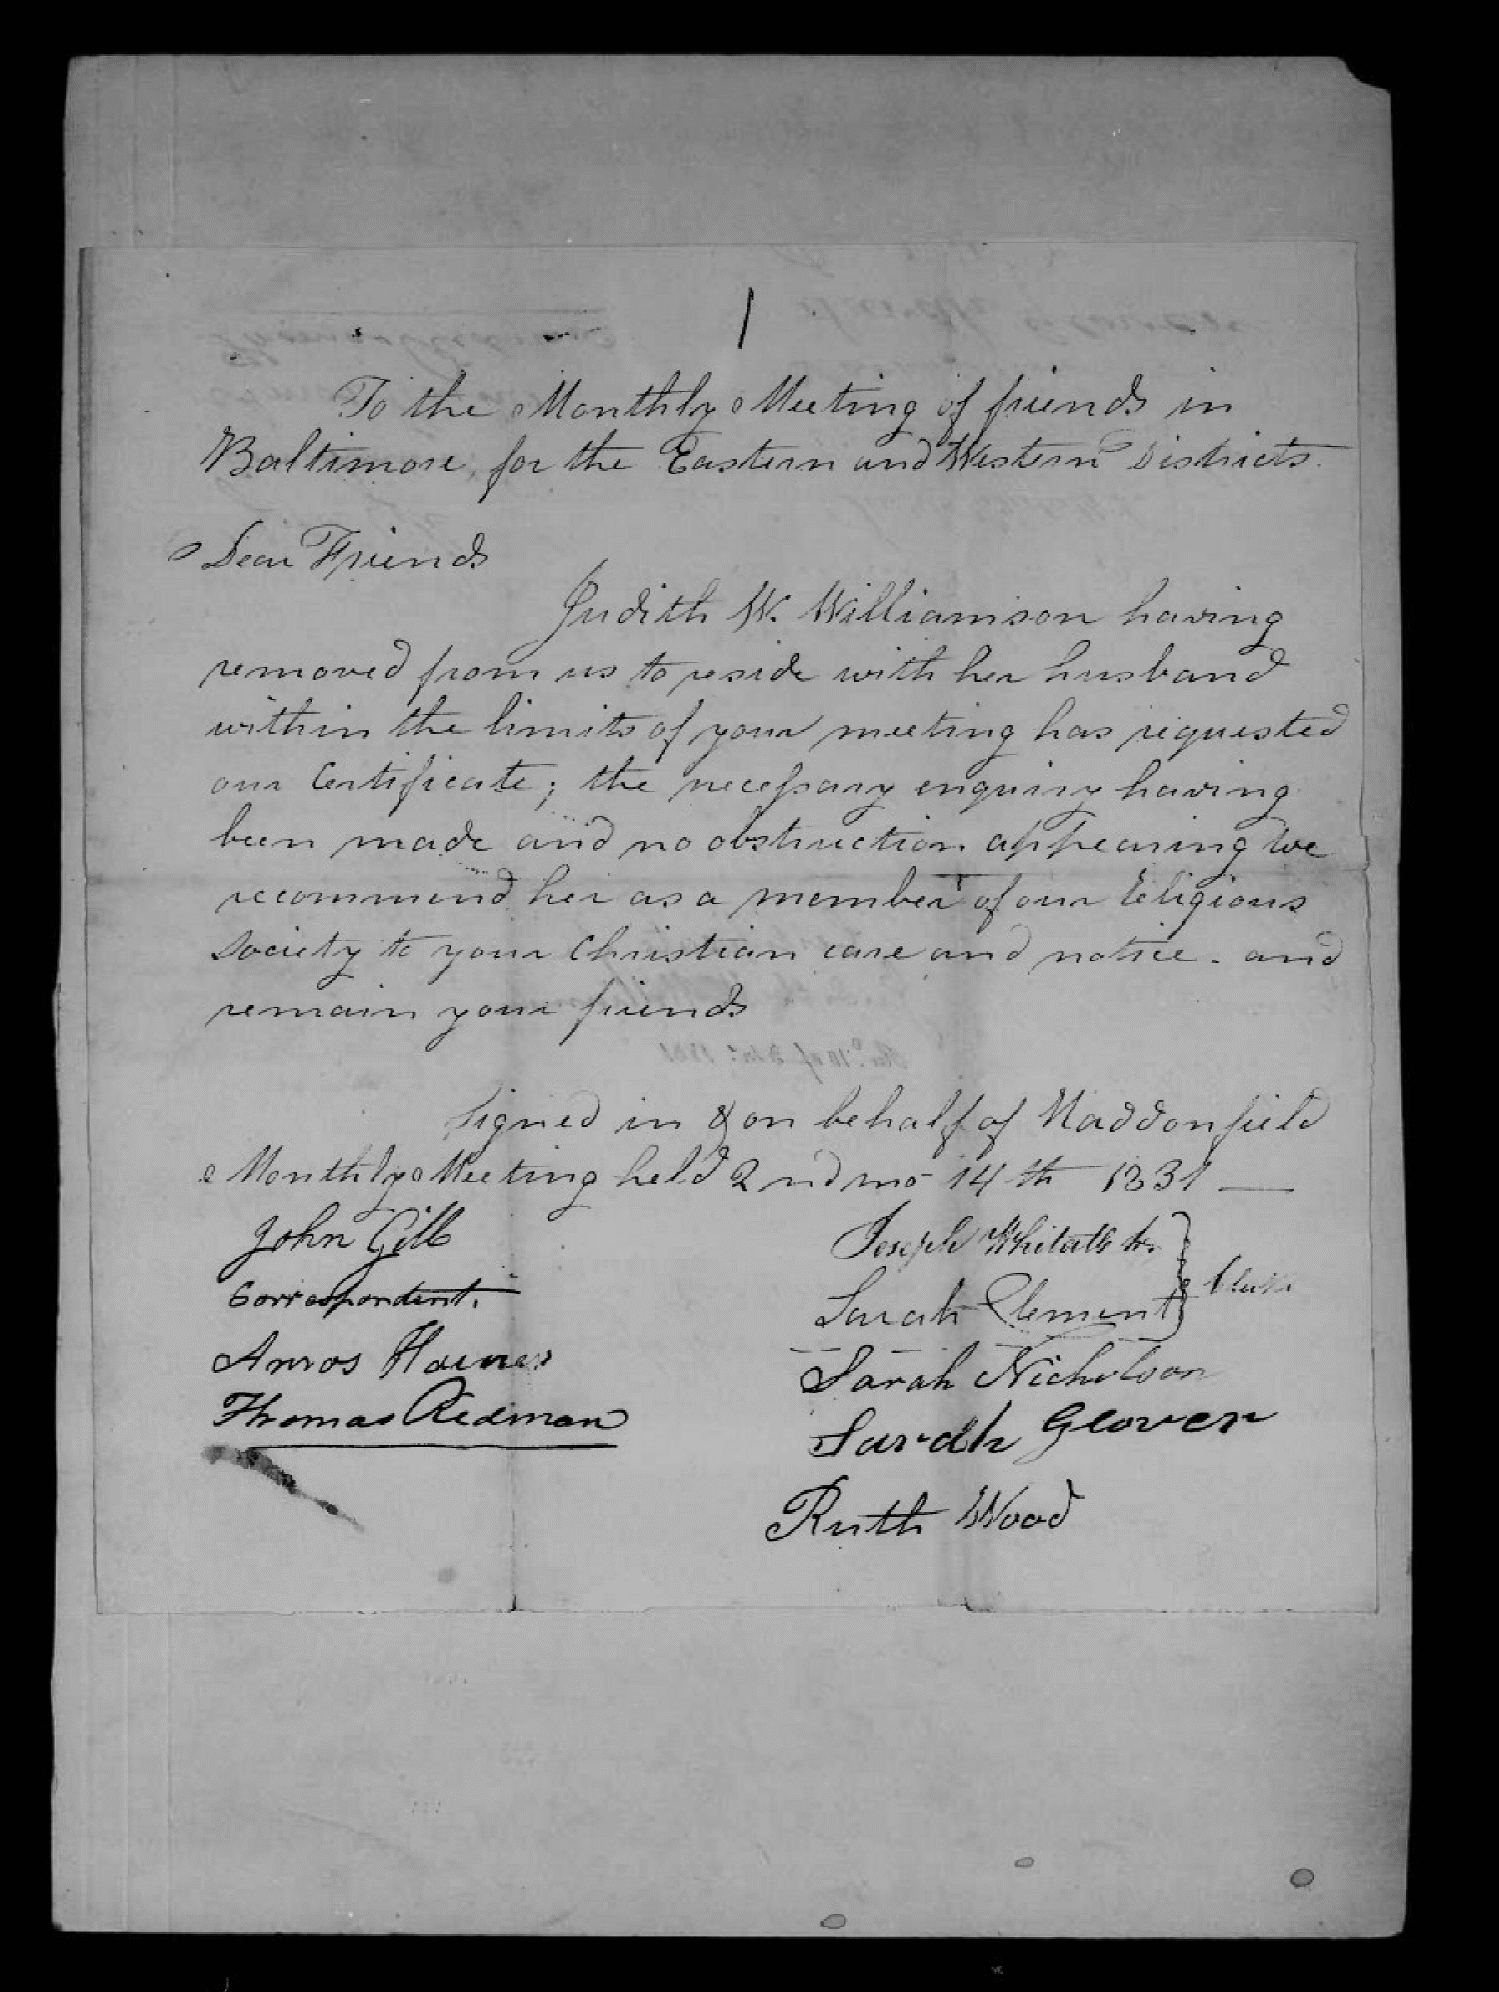 1
To the Monthly Meeting of friends in
Baltimore, for the Eastern and Western Districts.
Dear Friends
Judith W. Williamson having
removed from us to reside with her husband
within the limits of your meeting has requested
our Certificate; the necessary enquiry having
been made and no obstruction appearing we
recommend her as a member of our Religious
Society to your Christian care and notice. and
remain your friends
Signed in & on behalf of Haddonfield
Monthly Meeting held 2nd mo 14th 1831
John Gill
Correspondent.
Amos Haines
Thomas Redman
Joseph Whitall Jr.
Sarah Clement
Clerks
Sarah Nicholson
Sarah Glover
Ruth Wood